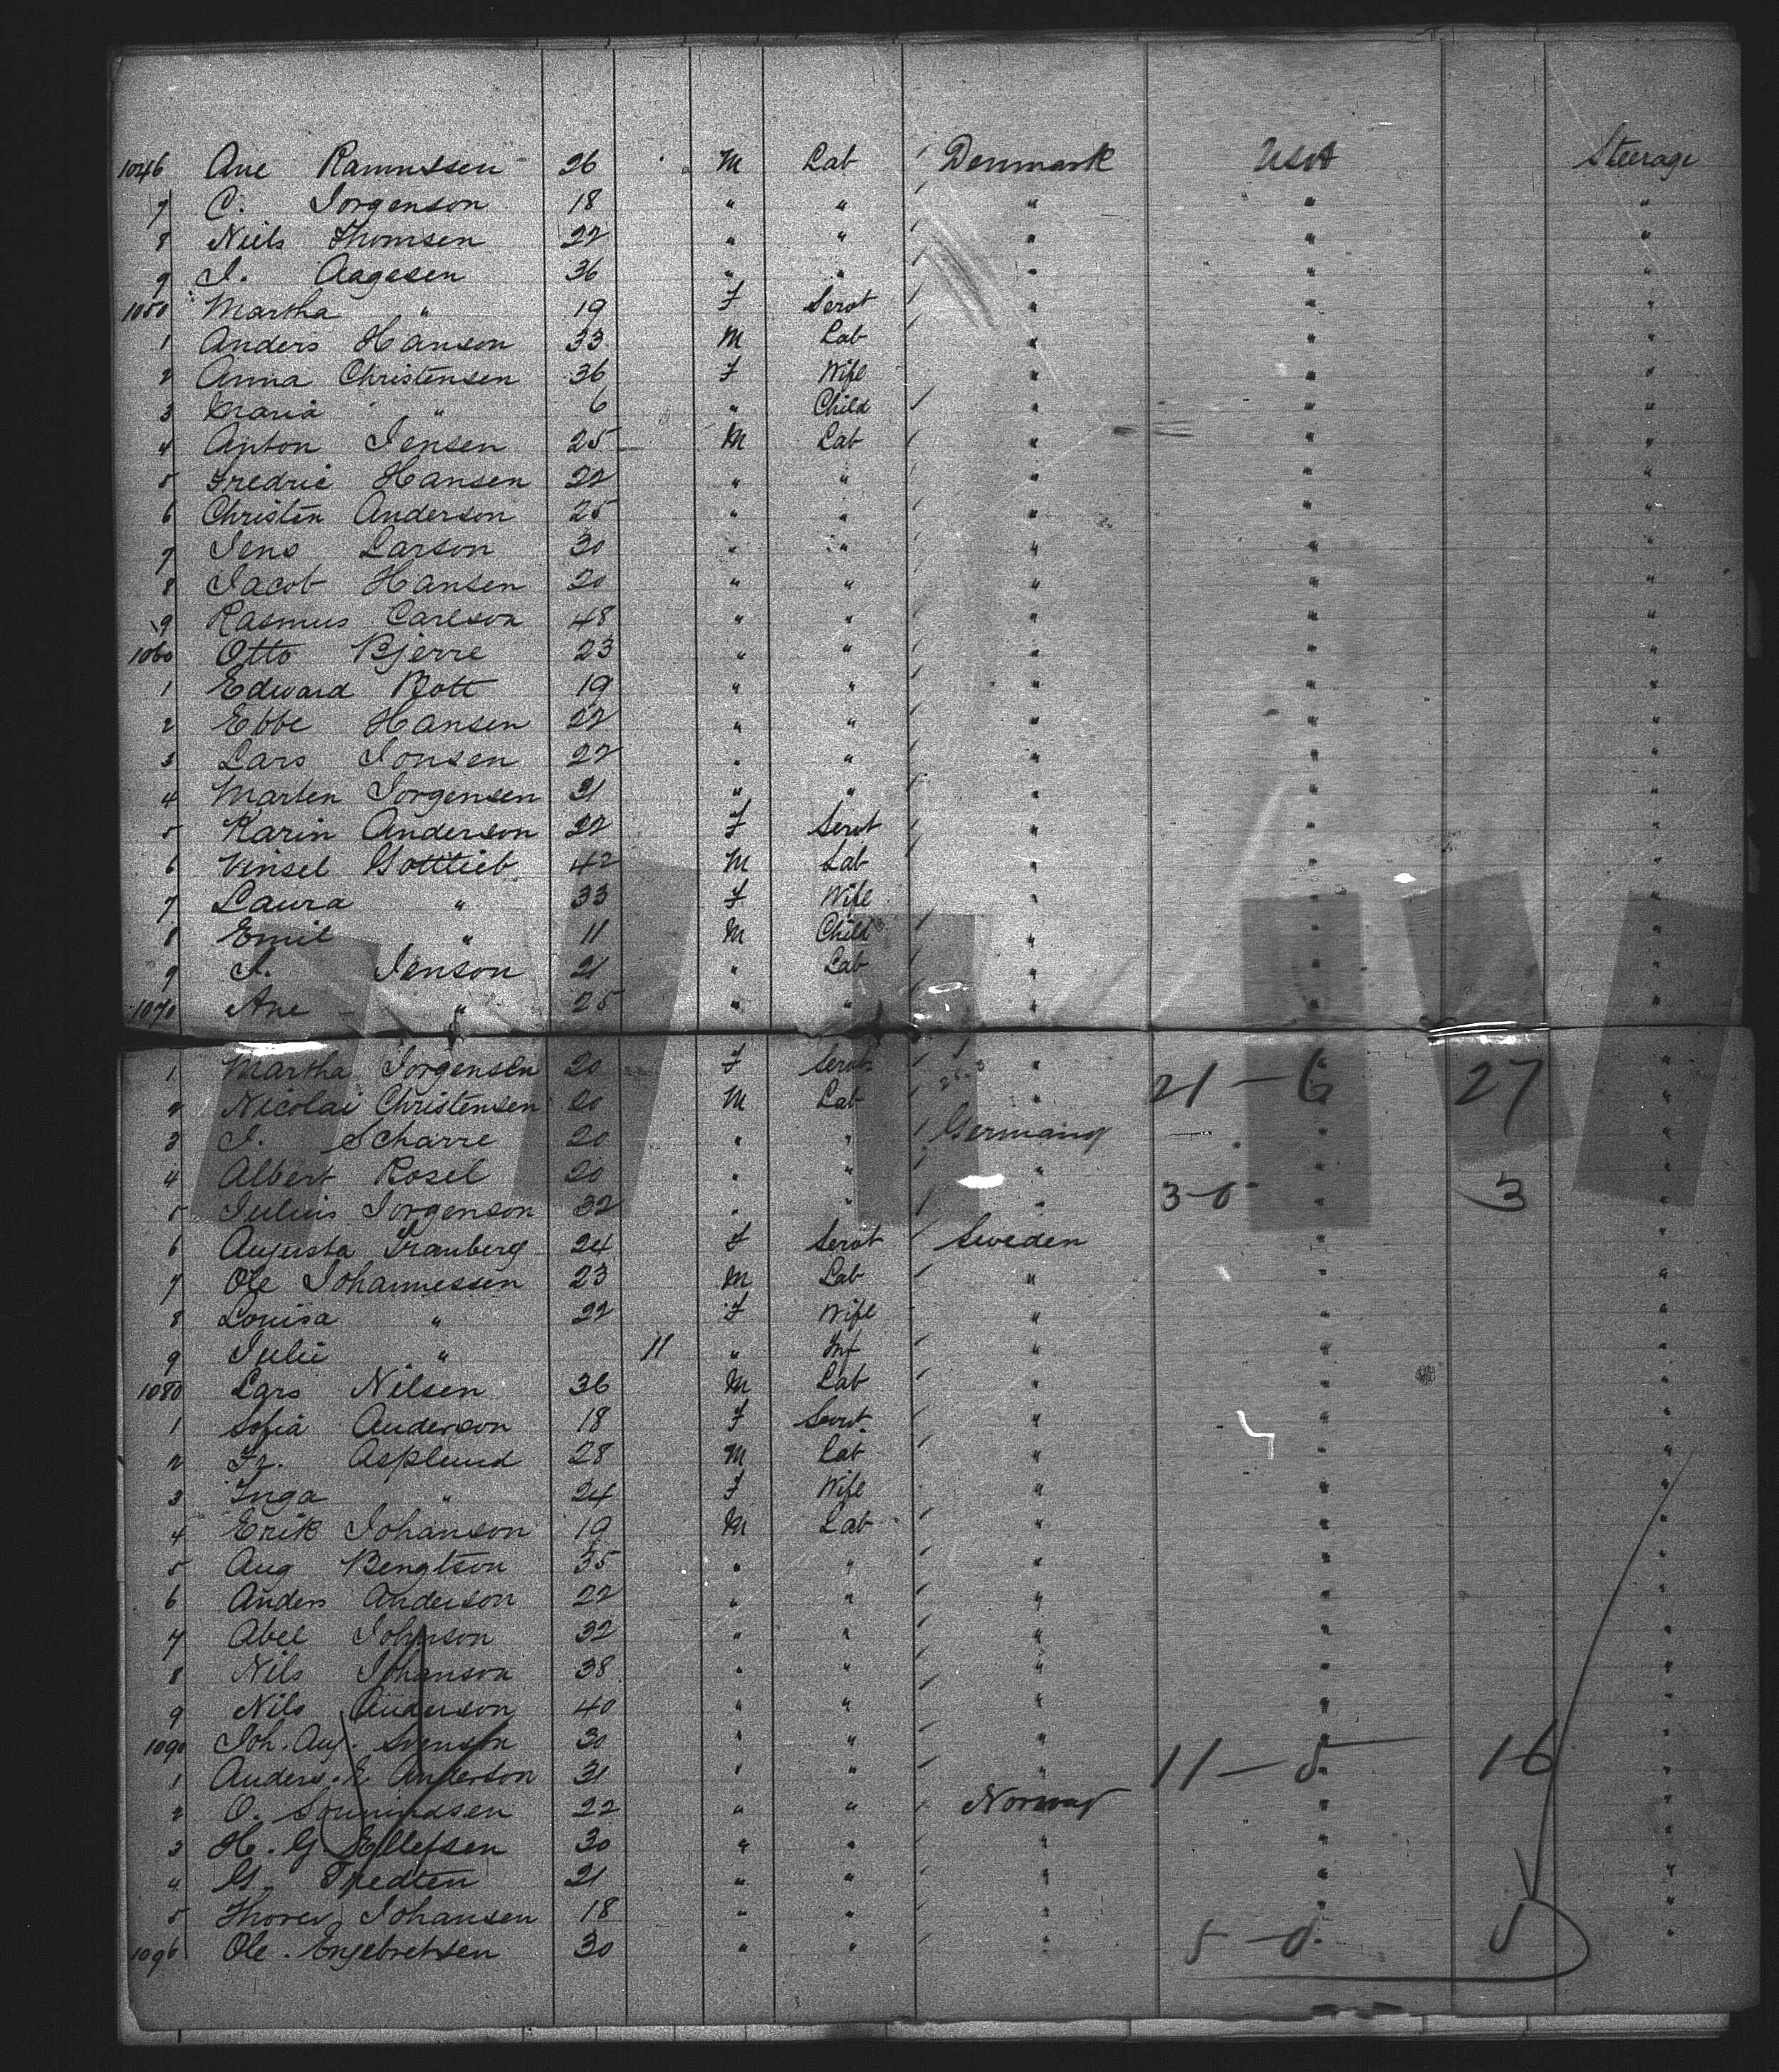 1046 Ane Rasmussen 26 M Lab Denmark USA Steerage
7 C. Jorgenson 18 " " " " "
8 Niels Thomsen 22 " " " " "
9 J. Aagesen 36 " " " " "
1050 Martha " 19 F Servt " " "
1 Anders Hanson 33 M Lab " " "
2 Anna Christensen 36 F Wife " " "
3 Maria " 6 " Child " " "
4 Anton Jensen 25 M Lab " " "
5 Fredric Hansen 22 " " " " "
6 Christen Anderson 25 " " " " "
7 Jens Larson 30 " " " " "
8 Jacob Hansen 20 " " " " "
9 Rasmus Carlson 48 " " " " "
1060 Otto Bjerre 23 " " " " "
1 Edward Bott 19 " " " " "
2 Ebbe Hansen 22 " " " " "
3 Lars Jonsen 22 " " " " "
4 Marten Jorgensen 21 " " " " "
5 Karin Anderson 22 F Servt " " "
6 Vinsel Gottlieb 42 M Lab " " "
7 Laura " 33 F Wife " " "
8 Emil " 11 M Child " " "
9 J. Jenson 21 " Lab " " "
1070 Ane " 25 " " " " "
1 Martha Jorgensen 20 F Servt " 21 - 6 27 "
2 Nicolai Christensen 20 M Lab " " "
3 J. Scharre 20 " " Germany " "
4 Albert Rosel 20 " " " " "
5 Julius Jorgenson 32 " " " 3-0 " 3 "
6 Augusta Tranberg 24 F Servt Sweden " "
7 Ole Johannessen 23 M Lab " " "
8 Louisa " 22 F Wife " " "
9 Julie " 11 " Inf " " "
1080 Lars Nilsen 36 M Lab " " "
1 Sofia Anderson 18 F Servt " " "
2 Fr. Asplund 28 M Lab " " "
3 Inga " 24 F Wife " " "
4 Erik Johanson 19 M Lab " " "
5 Aug Bengtson 35 " " " " "
6 Anders Anderson 22 " " " " "
7 Abel Johnson 32 " " " " "
8 Nils Johanson 38 " " " " "
9 Nils Anderson 40 " " " " "
1090 Joh. Aug. Svenson 30 " " " " "
1 Anders. E Anderson 31 " " " 11 - 5 16 "
2 O. 22 " " Norway " "
3 H. G. Ellefsen 30 " " " " "
4 G. Tredten 21 " " " " "
5 Thorev Johansen 18 " " " " "
1096 Ole. Engebretsen 30 " " " 5 - 0 5 "